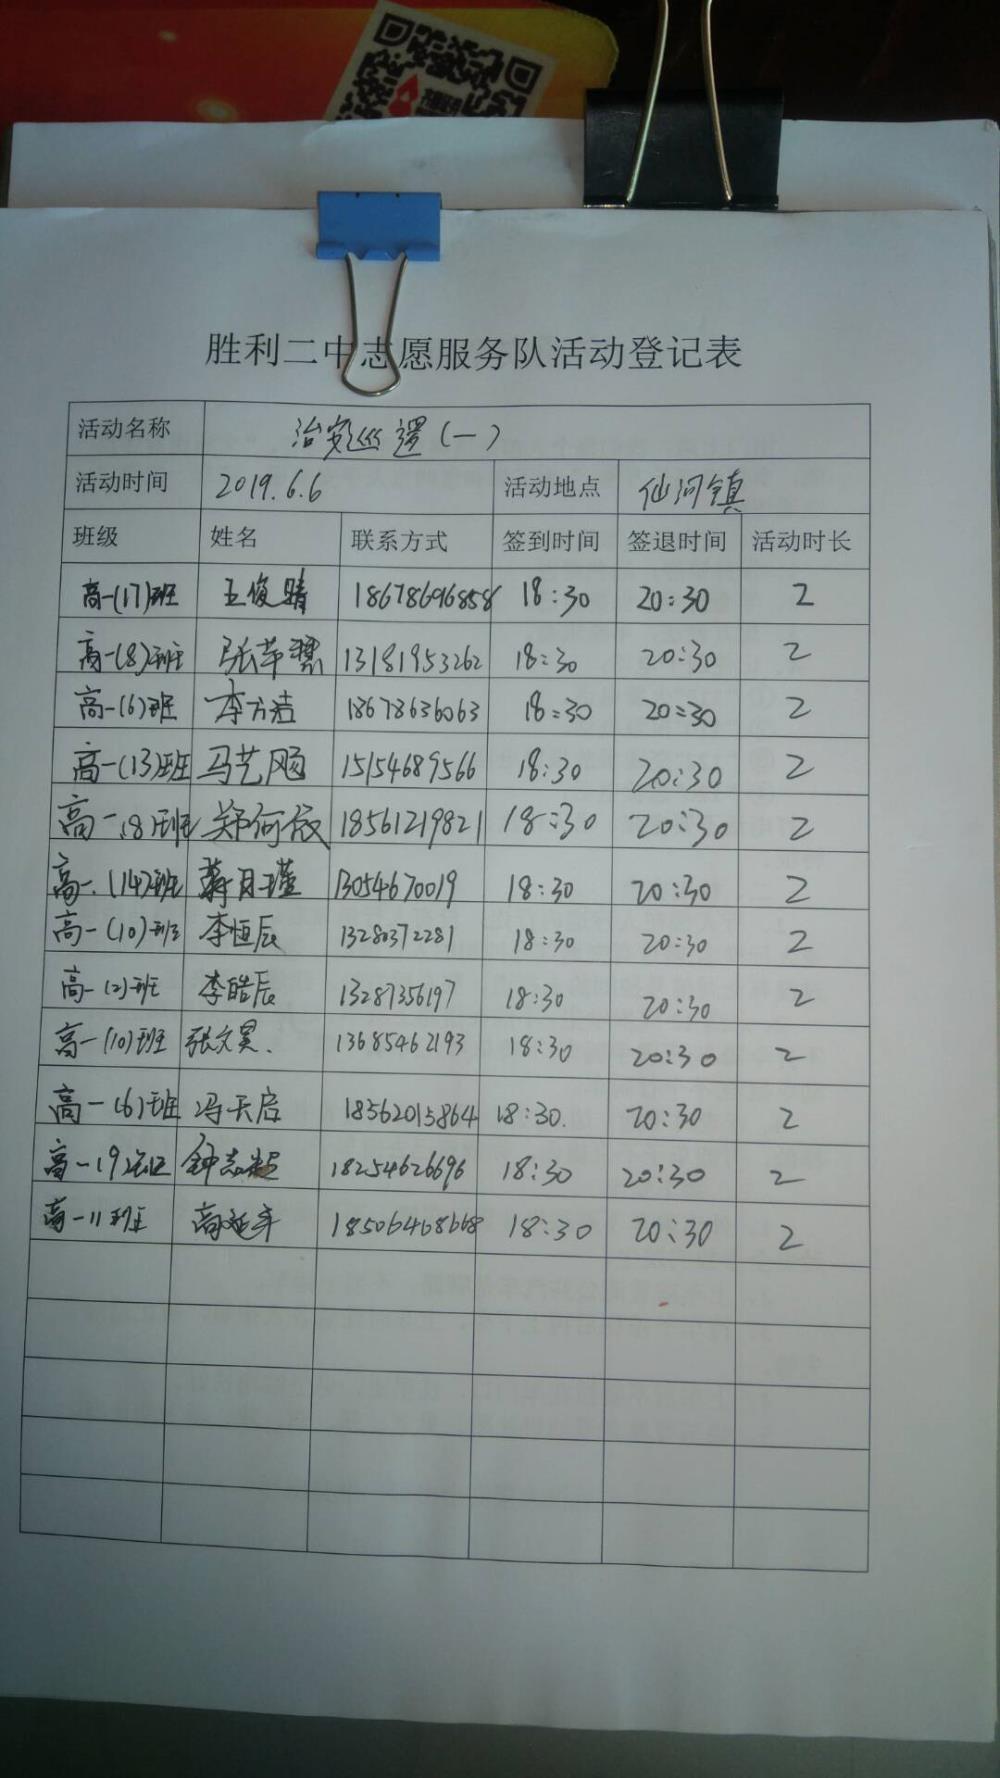 胜利二中志愿服务队活动登记表
活动名称 治安巡逻(一)
活动时间 2019.6.6 活动地点 仙河镇
班级 姓名 联系方式 签到时间 签退时间 活动时长
高一(17)班 王俊晴 18678696858 18:30 20:30 2
高一(8)班 张苹 13181953262 18:30 20:30 2
高一(6)班 李方洁 18678636063 18:30 20:30 2
高一(13)班 马艺飏 15154689566 18:30 20:30 2
高一(8)班 郑何依 18561219821 18:30 20:30 2
高一(14)班 蒋月瑾 13054670019 18:30 20:30 2
高一(10)班 李恒辰 13280372281 18:30 20:30 2
高一(2)班 李皓辰 13287356197 18:30 20:30 2
高一(10)班 张文昊. 13685462193 18:30 20:30 2
高一(6)班 冯天启 18562015864 18:30. 20:30 2
高一19班 钟志 18254626696 18:30 20:30 2
高一11班 高延 18506468668 18:30 20:30 2